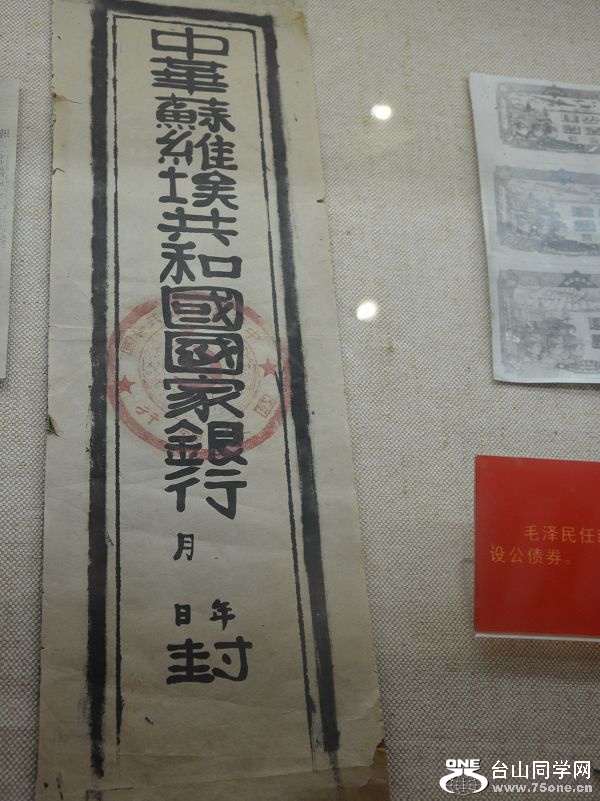 中華蘇維埃共和國國家銀行
月
年
日
封
毛泽民任
设公债券。
ONE
台山同学网
www.75one.cn